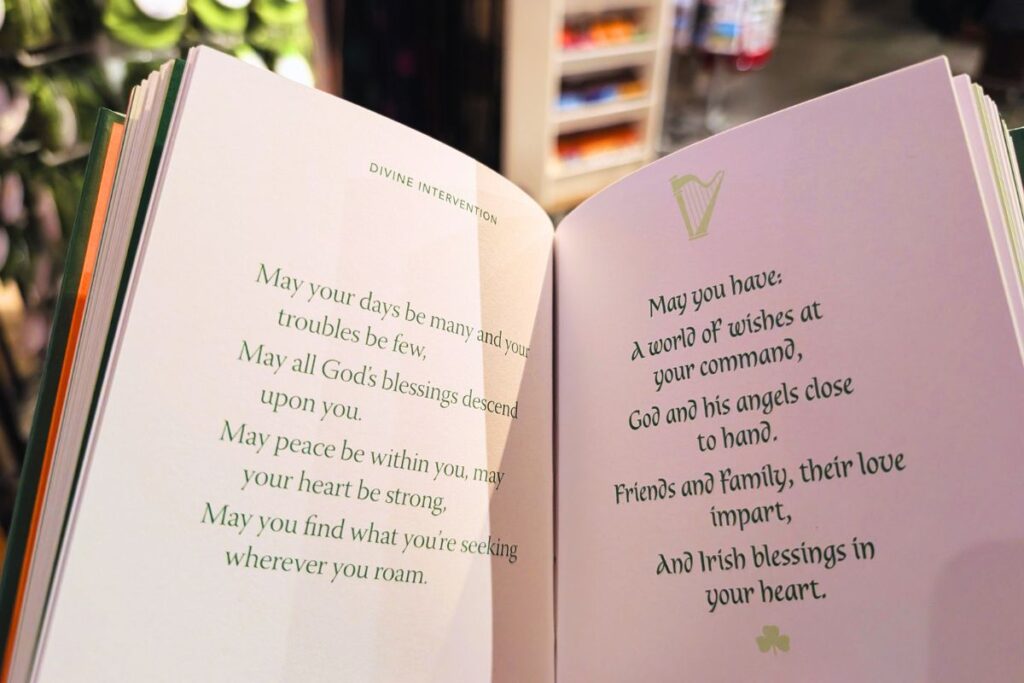 DIVINE INTERVENTION
May your days be many and your
troubles be few,
May all God's blessings descend
upon you.
May peace be within you, may
your heart be strong,
May you find what you're seeking
wherever you roam.
May you have:
A world of wishes at
your command,
God and his angels close
to hand.
Friends and family, their love
impart,
And Irish blessings in
your heart.